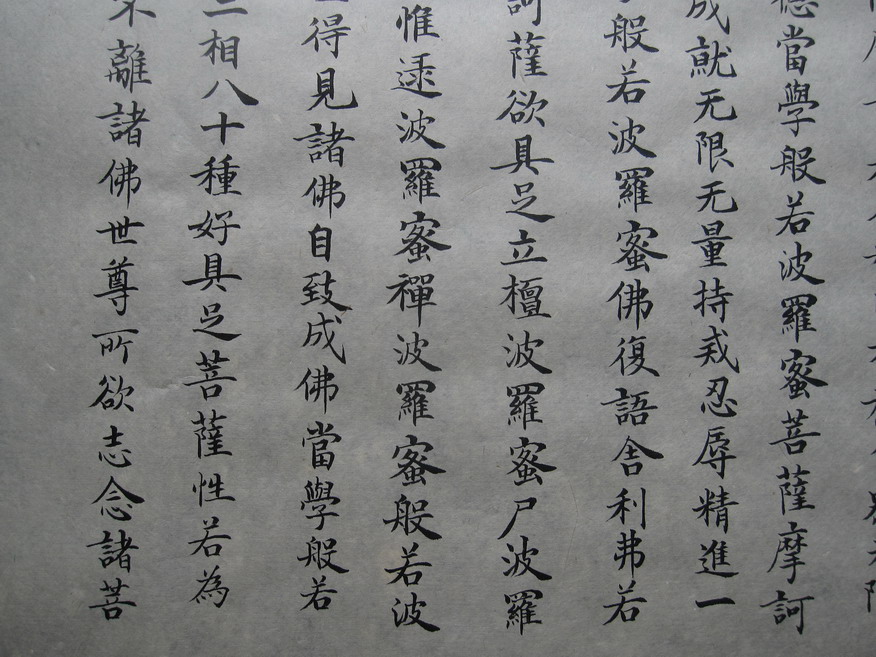 當學般若波羅蜜菩薩摩訶
成就无限无量持戒忍辱精進一
般若波羅蜜佛復語舍利弗若
訶薩欲具足立檀波羅蜜尸波羅
惟逮波羅蜜禪波羅蜜般若波
得見諸佛自致成佛當學般若
二相八十種好具足菩薩性若為
不離諸佛世尊所欲志念諸菩